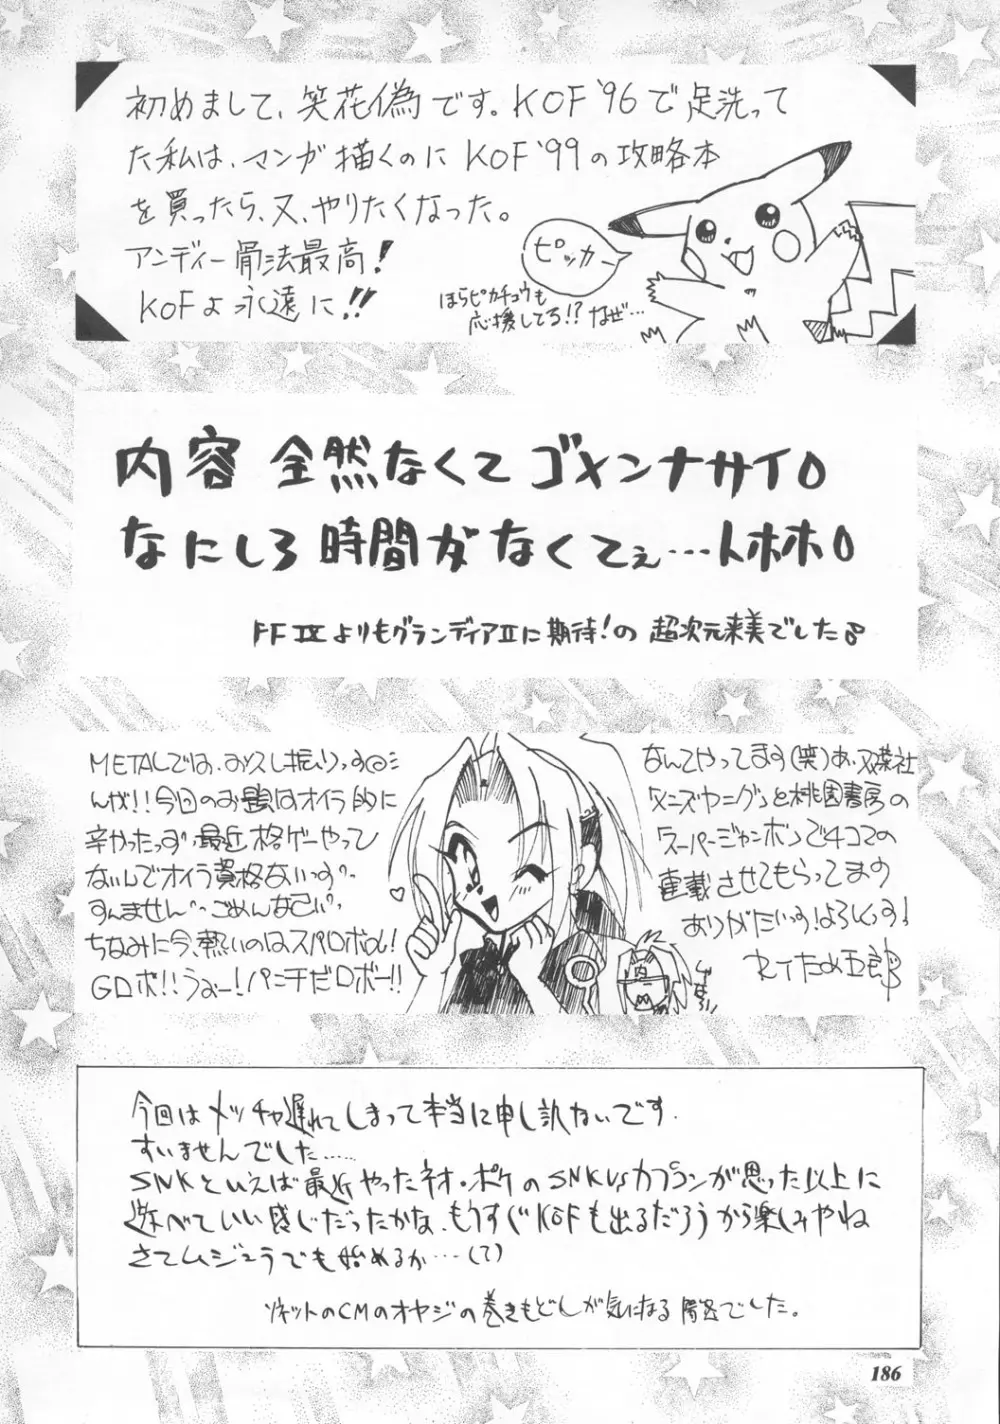 初めまして、笑花偽です。KOF'96で足洗って
た私は、マンガ描くのにKOF'99の攻略本
を買ったら、又、やりたくなった。
アンディー骨法最高!
KOFよ永遠に!!
ピッカー
ほらピカチュウも
応援してる!?なぜ…
内容 全然なくてゴメンナサイ。
なにしろ時間がなくてぇ…トホホ。
FFⅨよりもグランディアⅡに期待!の 超次元来美でした
METALでは、お久し振りっす
んが!!今回のお題はオイラ的に
辛かったっす 最近格ゲーやって
ないんでオイラ資格ないっす
すんません ごめんなさい
ちなみに今、熱いのはスパロボα!
Gロボ!!うぉー!パンチだロボー!!
なんてやってます(笑)あ、双葉社
「メンズヤング」と桃園書房の
「スーパージャンボ」で4コマの
連載させてもらってます
ありがたいっす!よろしくっす!
セイため五郎
今回はメッチャ遅れてしまって本当に申し訳ないです.
すいませんでした……
SNKといえば最近やったネオ・ポケのSNK VS カプコンが思った以上に
遊べていい感じだったかな、もうすぐKOFも出るだろうから楽しみやね
さてムジュラでも始めるか…(了)
ソネットのCMのオヤジの巻きもどしが気になる でした。
186